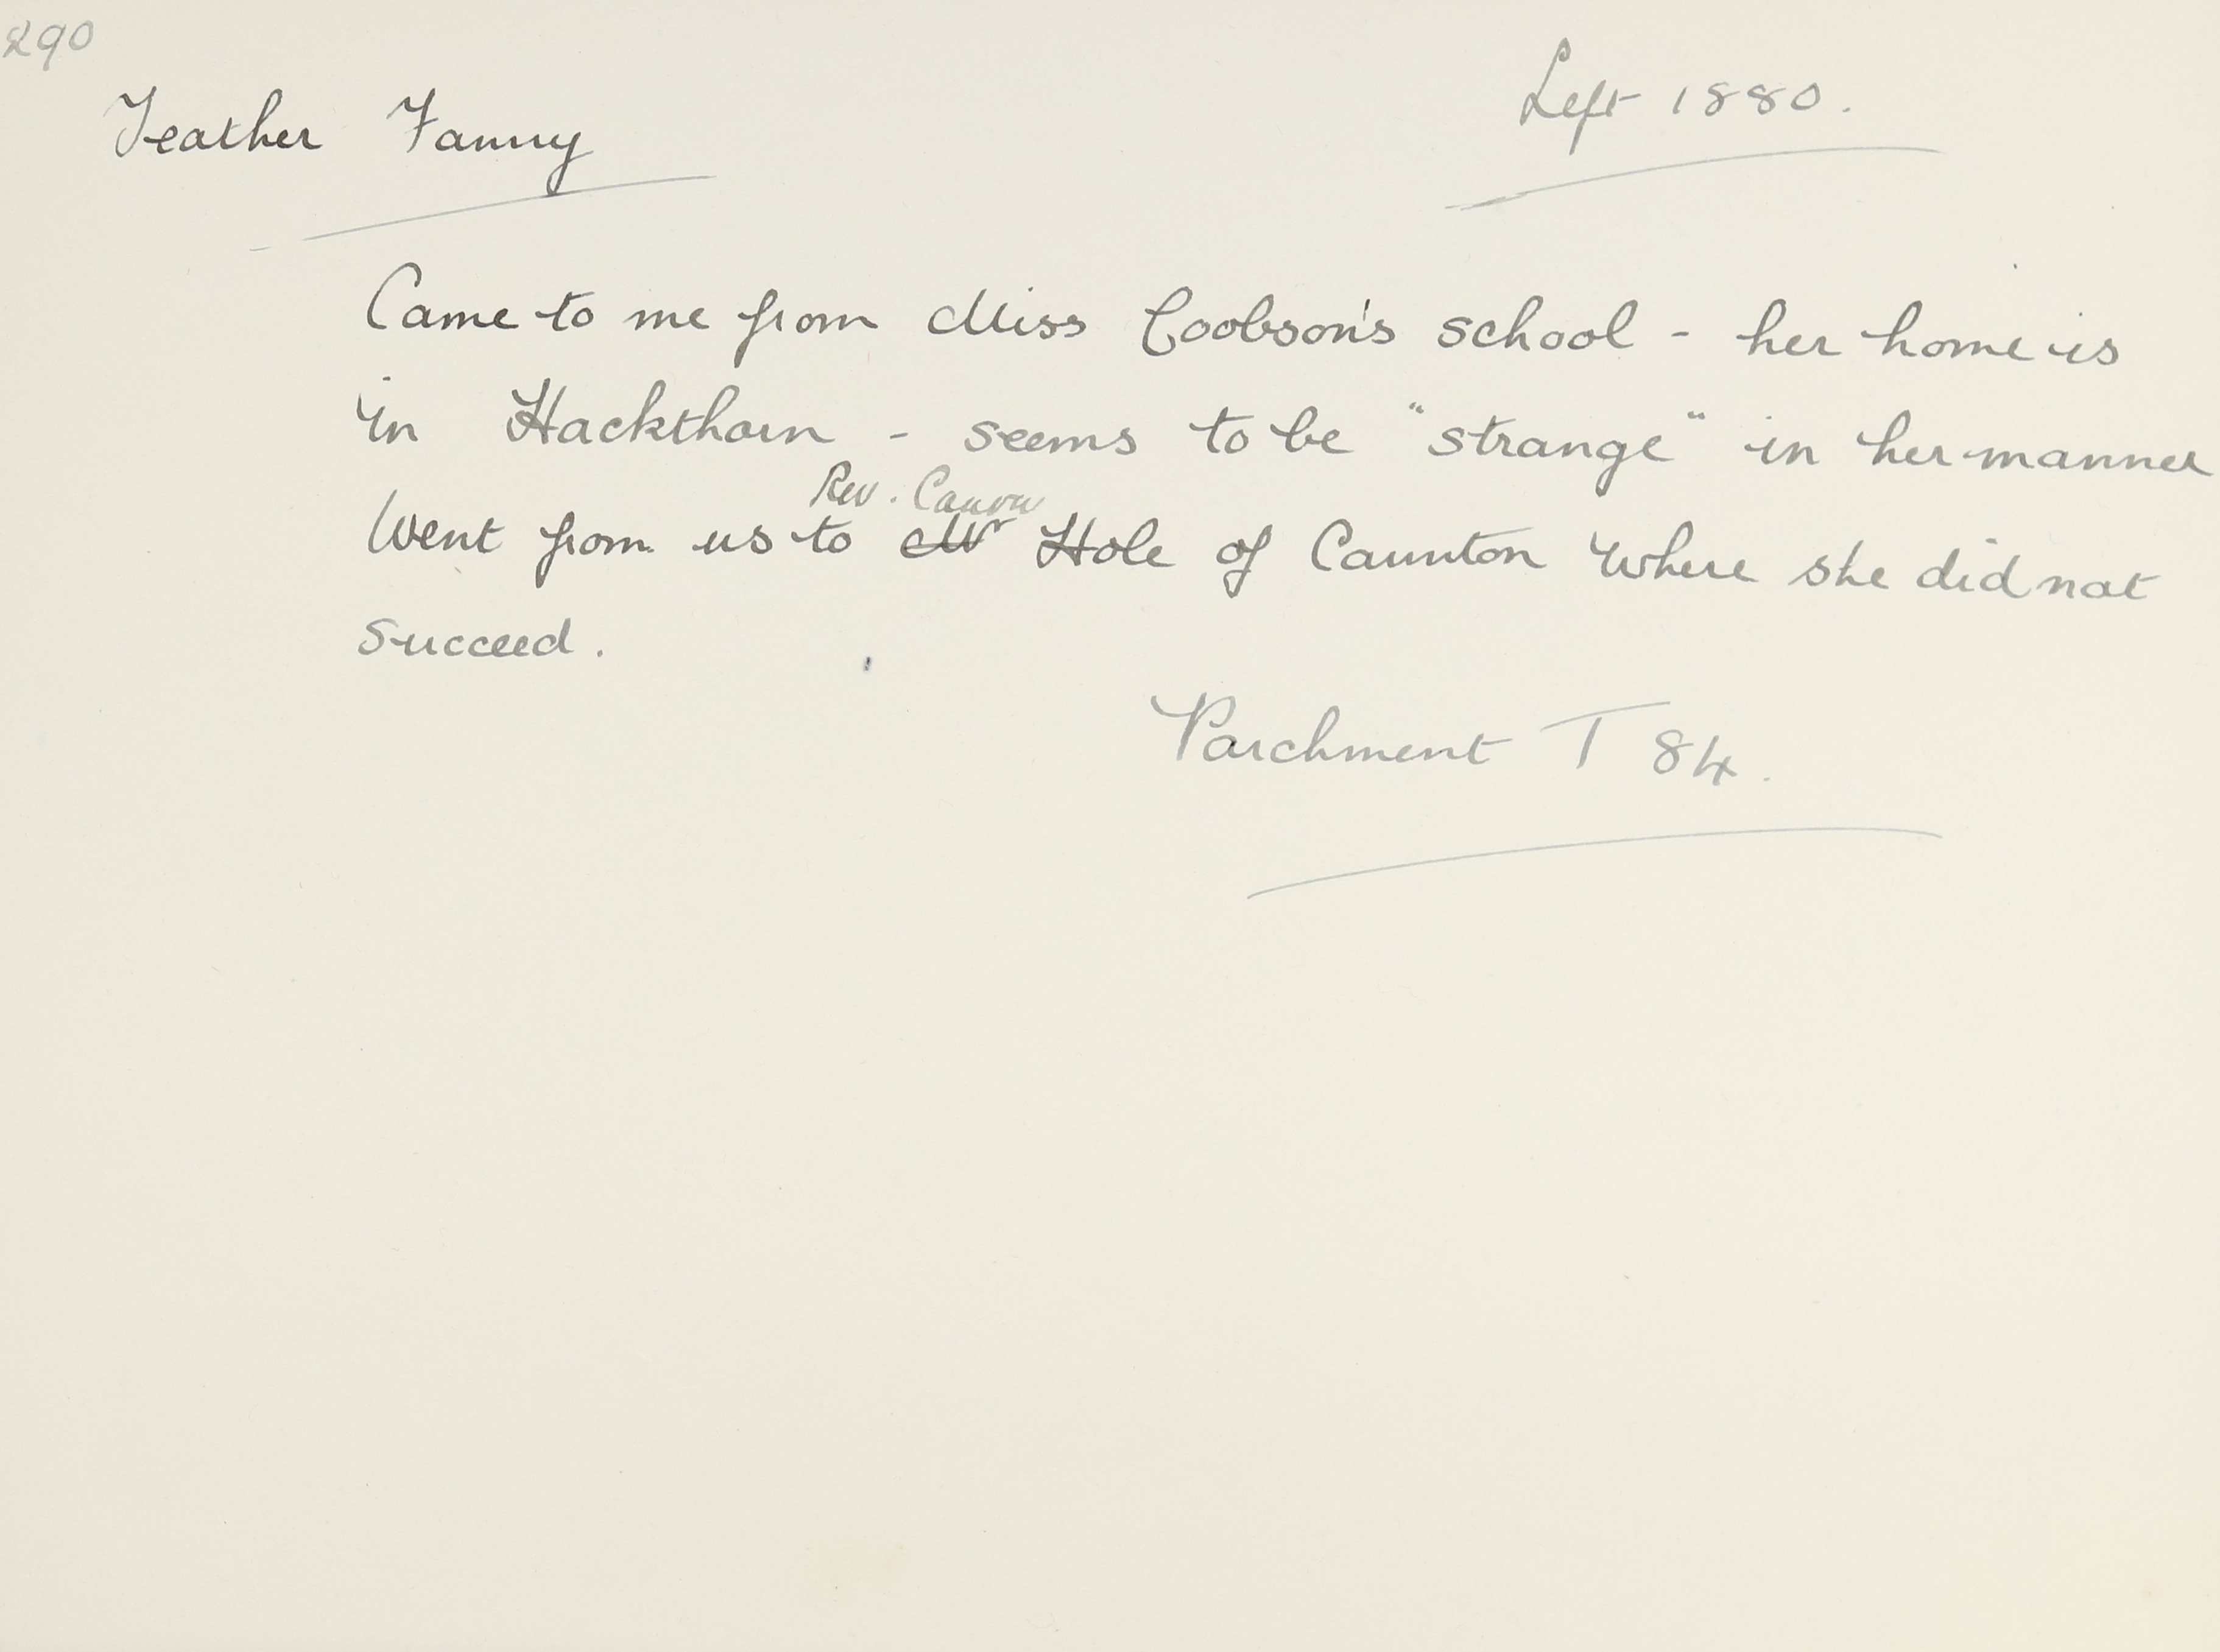 290
Teather Fanny
Left 1880.
Came to me from Miss Coobson's school - her home is
in Hackthorn - seems to be "strange" in her manner
Rev. Canon
Went from us to Mr Hole of Caunton where she did not
succeed.
Parchment T 84.